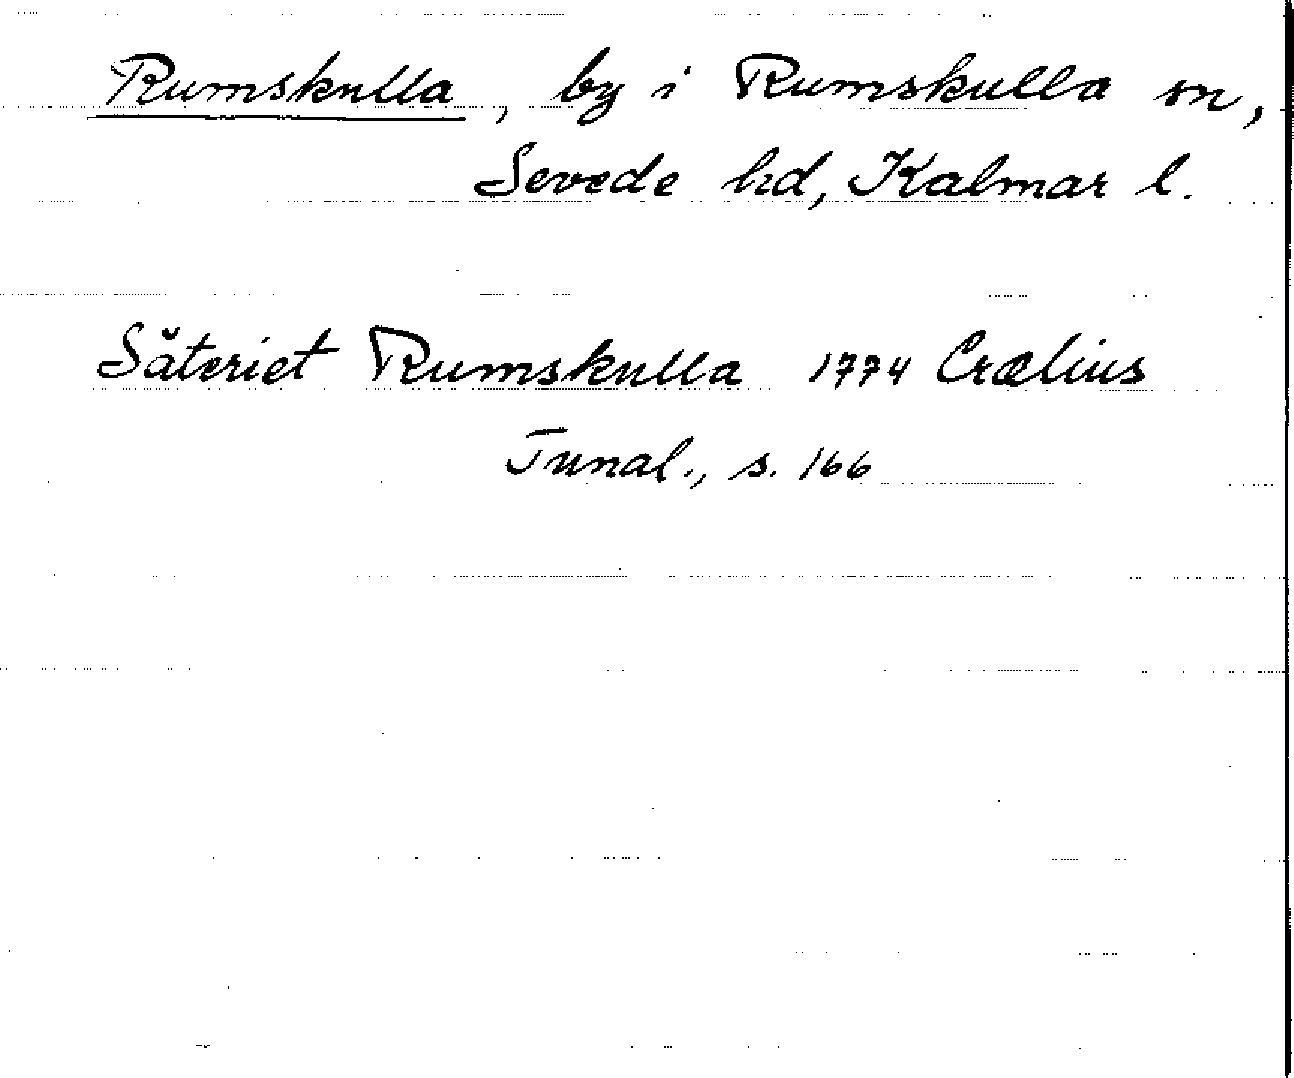 Rumskulla, by i Rumskulla sn,
Sevede hd, Kalmar l.
Säteriet Rumskulla 1774 Crælius
Tunal., s. 166